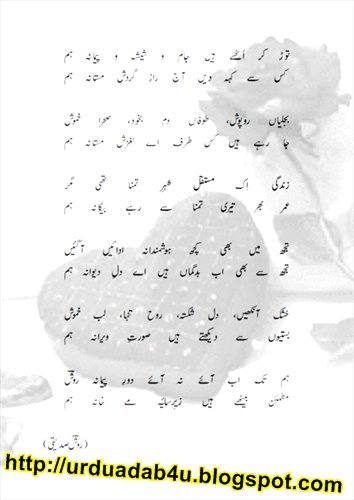 توڑ کر اُٹھے ہیں جام و شیشہ و پیمانہ ہم
کس سے کہہ دیں آج رازِ گردشِ مستانہ ہم
بجلیاں روپوش، طوفاں دم بخود، صحرا خموش
جا رہے ہیں کس طرف اے لغزشِ مستانہ ہم
زندگی اک مستقل شہرِ تمنا تھی مگر
عمر بھر تیری تمنا سے رہے بیگانہ ہم
تجھ میں بھی کچھ ہوشمندانہ ادائیں آ گئیں
تجھ سے بھی اب بدگماں ہیں اے دلِ دیوانہ ہم
خشک آنکھیں، دل شکستہ، روح تنہا، لب خموش
بستیوں سے دیکھتے ہیں صورتِ ویرانہ ہم
ہم تک اب آئے نہ آئے دورِ پیمانہ روشؔ
مطمئن بیٹھے ہیں زیرِ سایۂ مے خانہ ہم
(روشؔ صدیقی)
http://urduadab4u.blogspot.com